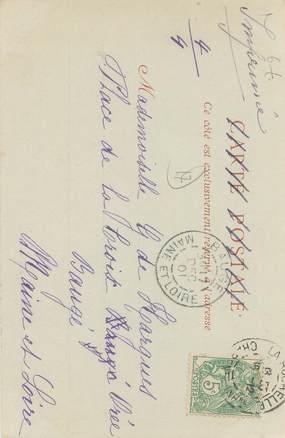 Imprimé
CARTE POSTALE
Ce côté est exclusivement réservé à l'adresse
4
4
17
Mademoiselle G de Hargues
Place de la Croix Orée
Baugé
Maine et Loire
BAUGÉ
DEC
01
MAINE ET LOIRE
LA ROCHELLE
5